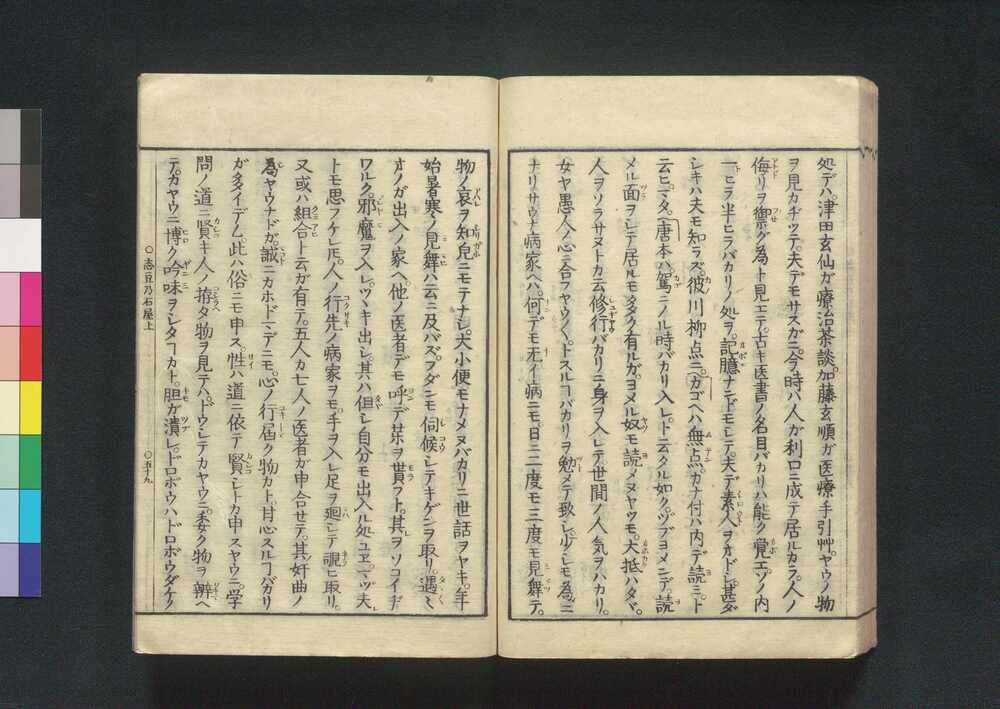 処デハ。津田玄仙ガ療治茶談。加藤玄順ガ医療手引艸。ヤウノ物
ヲ見カヂツテ。夫デモサスガニ。今時ハ人ガ利口ニ成テ居ルカラ。人ノ
侮リヲ禦グ為ト見エテ。古キ医書ノ名目バカリハ能ク覚エ。ソノ内
一ヒラ半ヒラバカリノ処ヲ。記臆ナンドモシテ。夫デ素人ヲオドシ。甚ダ
シキハ夫モ知ラズ。彼川柳点ニ。カゴヘハ無点。カナ付ハ内デ読ミ。ト
云ヒ。マタ。唐本ハ駕ニノル時バカリ入レ。ト云タル如ク。ツブヨメンデ。読
メル面ヲシテ居ルモ多ク有ルガ。ヨメル奴モ読メヌヤツモ。大抵ハタヾ。
人ヲソラサヌトカ云修行バカリニ身ヲ入レテ。世間ノ人気ヲハカリ。
女ヤ愚人ノ心ニ合フヤウノ。トスルヿバカリヲ勉メテ致シ。少シモ為ニ
ナリサウナ病家ヘハ。何デモ无イ病ニモ。日ニ二度モ三度モ見舞テ。
物ノ哀ヲ知皃ニモテナシ。大小便モナメヌバカリニ世話ヲヤキ。年
始暑寒ノ見舞ハ云ニ及バズ。フダンモ伺候シテキゲンヲ取リ。遇々
オノガ出入ノ家ヘ。他ノ医者デモ呼デ茶ヲ貰フト。其ヲソコイヂ
ワルク。邪魔ヲ入レ。ツヽキ出シ。其ハ但シ自分モ出入ル処ユヱ。マヅ夫
トモ思フケレドモ。人ノ行先ノ病家ヲモ。手ヲ入レ足ヲ廻シテ覗ヒ取リ。
又或ハ組合ト云ガ有テ。五人カ七人ノ医者ガ申合セテ。其奸曲ノ
為ヤウナドガ。誠ニカホドマデニモ。心ノ行届ク物カト。甘心スルヿバカリ
ガ多イデム。此ハ俗ニモ申ス。性ハ道ニ依テ賢シトカ申スヤウニ。学
問ノ道ニ賢キ人ノ。拵タ物ヲ見テハ。ドウシテカヤウニ。委ク物ヲ辨ヘ
テ。カヤウニ博ク吟味ヲシタヿカト。胆ガ潰レ。ドロボウハドロボウダケク
○志豆乃石屋上
○五十九